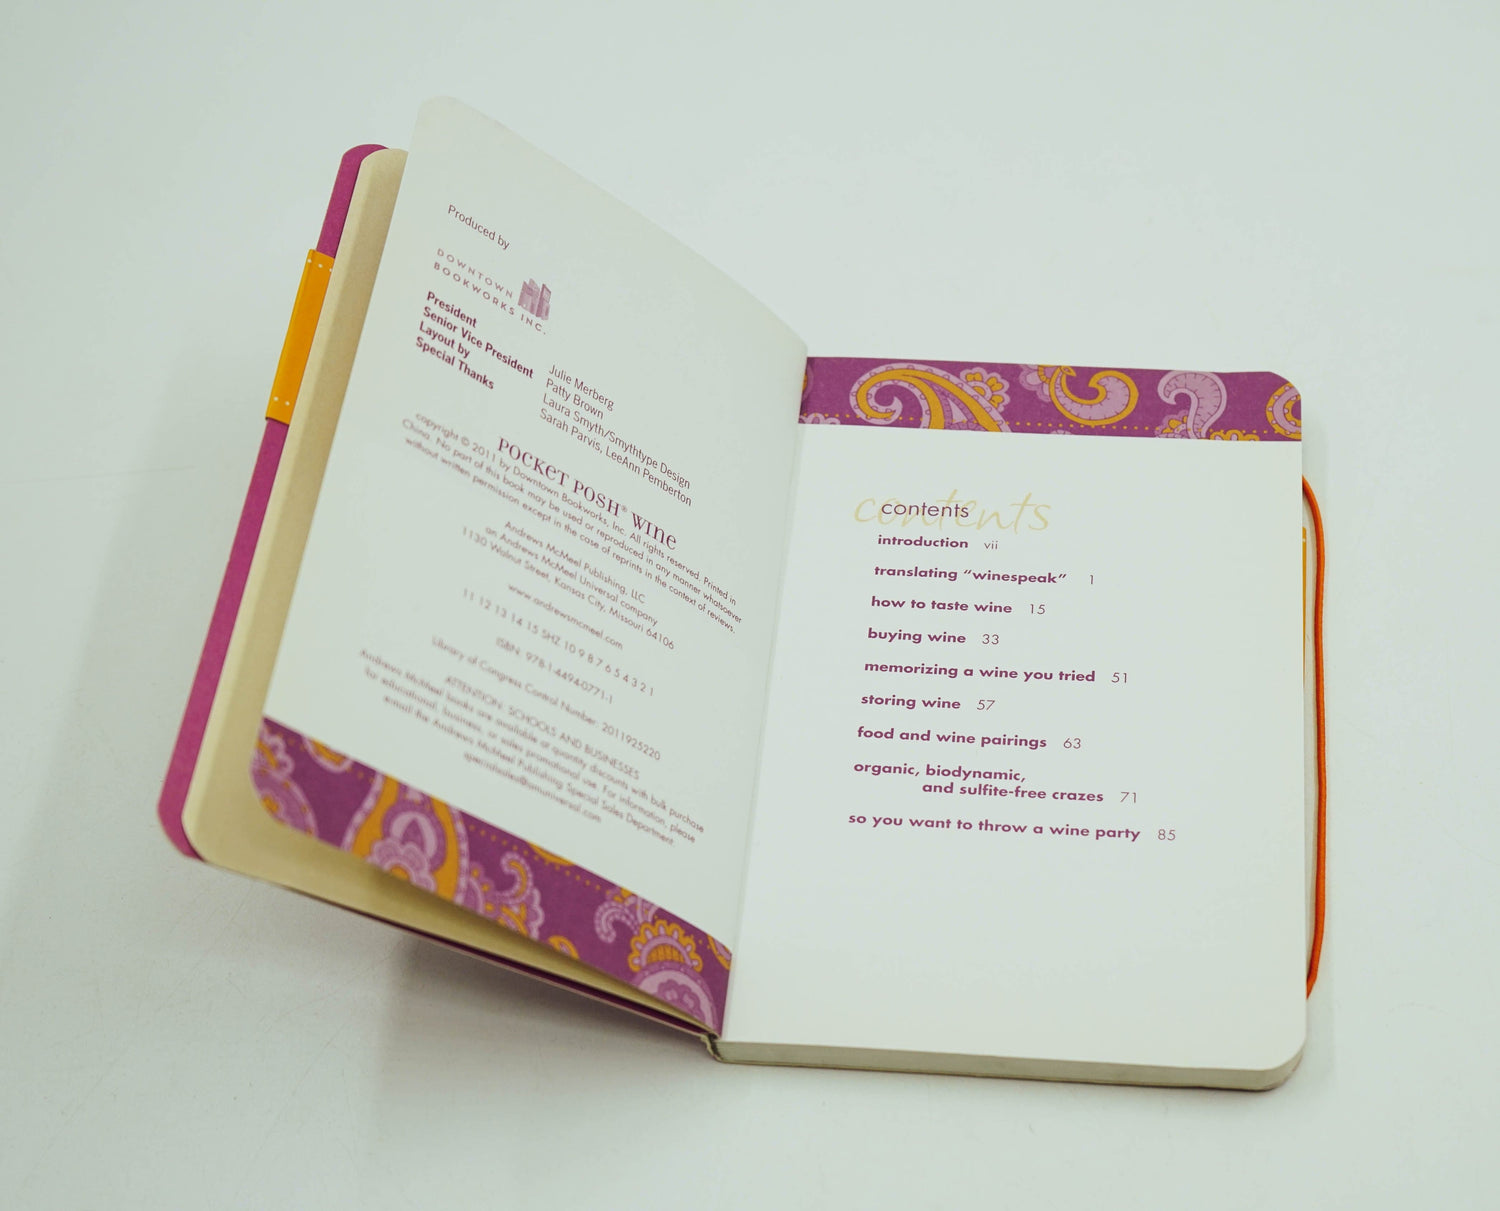 Produced by
DOWNTOWN
BOOKWORKS INC.
President Julie Merberg
Senior Vice President Patty Brown
Layout by Laura Smyth/Smythtype Design
Special Thanks Sarah Parvis, LeeAnn Pemberton
POCKET POSH® WINE
copyright © 2011 by Downtown Bookworks, Inc. All rights reserved. Printed in
China. No part of this book may be used or reproduced in any manner whatsoever
without written permission except in the case of reprints in the context of reviews.
Andrews McMeel Publishing, LLC
an Andrews McMeel Universal company
1130 Walnut Street, Kansas City, Missouri 64106
www.andrewsmcmeel.com
11 12 13 14 15 SHZ 10 9 8 7 6 5 4 3 2 1
ISBN: 978-1-4494-0771-1
Library of Congress Control Number: 2011925220
ATTENTION: SCHOOLS AND BUSINESSES
Andrews McMeel books are available at quantity discounts with bulk purchase
for educational, business, or sales promotional use. For information, please
email the Andrews McMeel Publishing Special Sales Department:
specialsales@amuniversal.com
contents
contents
introduction vii
translating “winespeak” 1
how to taste wine 15
buying wine 33
memorizing a wine you tried 51
storing wine 57
food and wine pairings 63
organic, biodynamic,
and sulfite-free crazes 71
so you want to throw a wine party 85